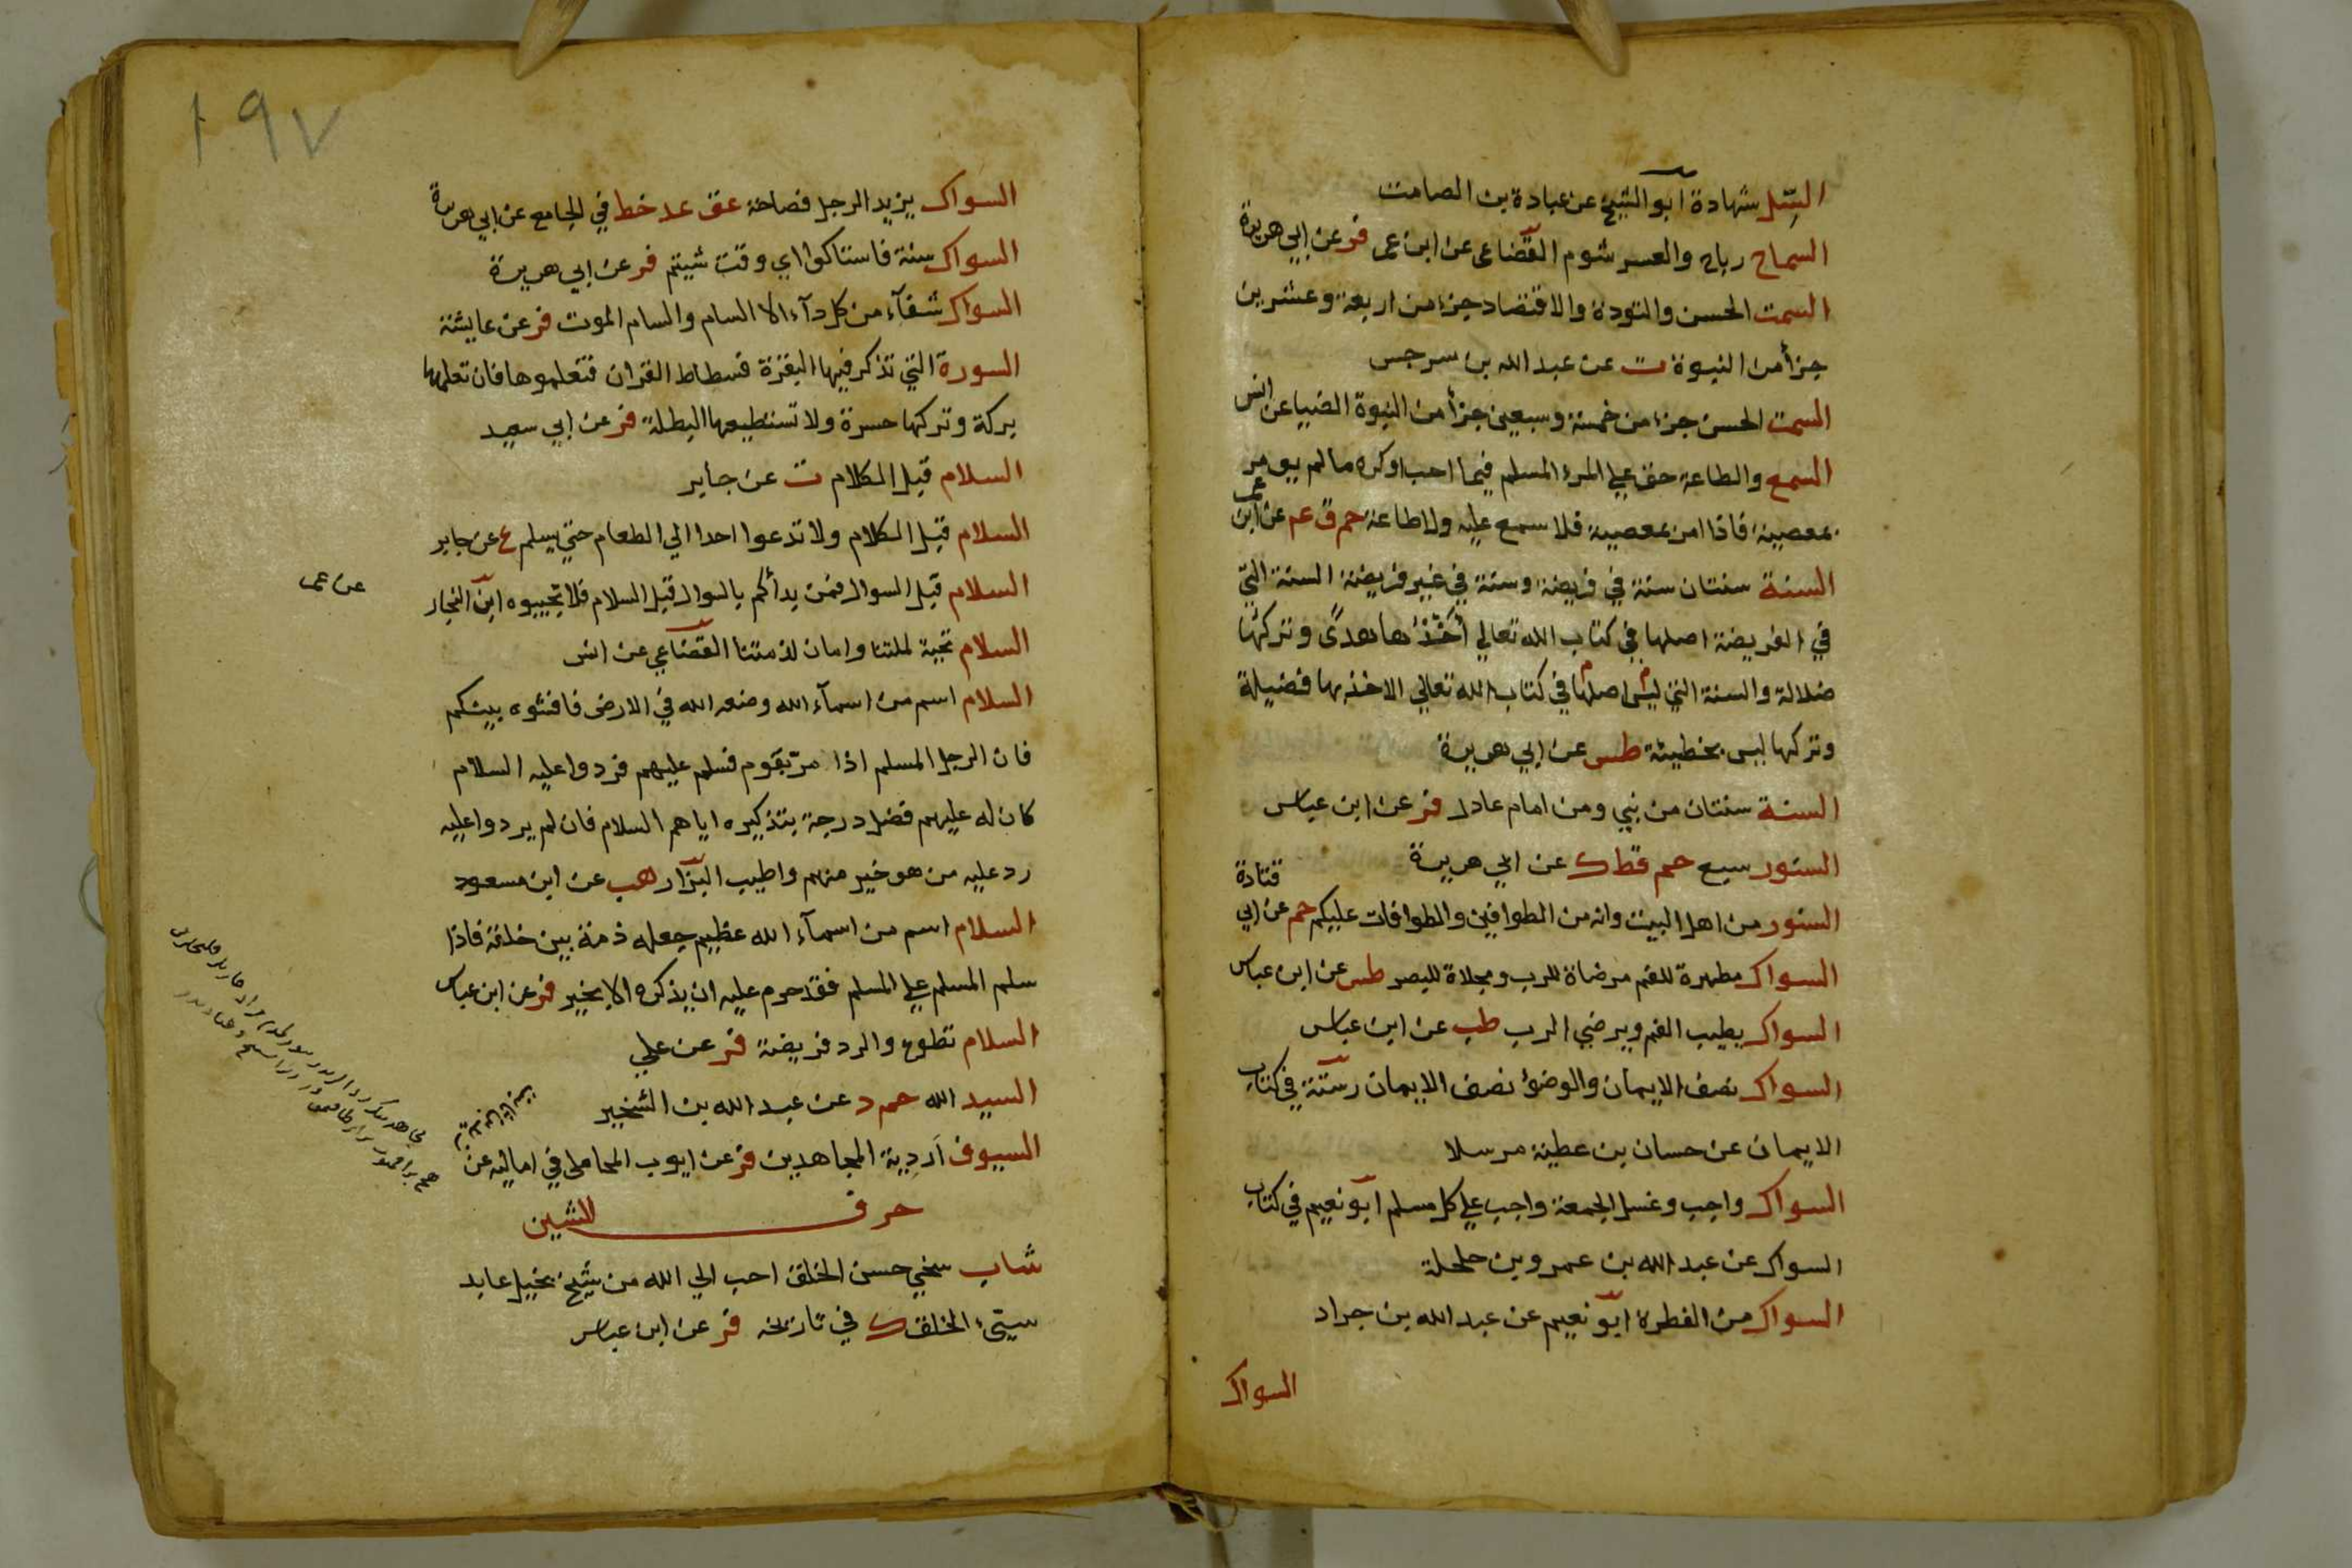 السِّل شهادة ابو الشيخ عن عبادة بن الصامت
السماح رباح والعسر شوم القضاعى عن ابن عمر فر عن ابي هريرة
السمت الحسن والتودة والاقتصاد جزء من اربعة وعشرين
جزأ من النبوة ت عن عبد الله بن سرجس
السمت الحسن جزء من خمسة وسبعين جزأ من النبوة الضيا عن انس
السمع والطاعة حق علي المرء المسلم فيما احب اوكره مالم يومر
بمعصية فاذا امر بمعصية فلا سمع عليه ولا طاعة حم ق عم عن ابن عمر
السنة سنتان سنة في فريضة وسنة في غير فريضة السنة التي
في الفريضة اصلها في كتاب الله تعالي أَخْذُها هدىً وتركها
ضلالة والسنة التي ليس اصلها في كتاب الله تعالي الاخذ بها فضيلة
وتركها ليس بخطيئة طس عن ابي هريرة
السنة سنتان من نبي ومن امام عادل فر عن ابن عباس
السنور سبع حم قط ك عن ابي هريرة
السنور من اهل البيت وانه من الطوافين والطوافات عليكم حم عن ابي قتادة
السواك مطهرة للفم مرضاة للرب ومجلاة للبصر طس عن ابن عباس
السواك يطيب الفم ويرضي الرب طب عن ابن عباس
السواك نصف الايمان والوضوء نصف الايمان رستة في كتاب
الايمان عن حسان بن عطية مرسلا
السواك واجب وغسل الجمعة واجب علي كل مسلم ابو نعيم في كتاب
السواك عن عبد الله بن عمرو بن حلحلة
السواك من الفطرة ابو نعيم عن عبد الله بن جراد
السواك
١٩٧
السواك يزيد الرجل فصاحة عق عد خط في الجامع عن ابي هريرة
السواك سنة فاستاكوا اي وقت شيتم فر عن ابي هريرة
السواك شفآء من كل دآء الا السام والسام الموت فر عن عايشة
السورة التي تذكر فيها البقرة فسطاط القران فتعلموها فان تعلمها
بركة وتركها حسرة ولا تستطيعها البطلة فر عن ابي سعيد
السلام قبل الكلام ت عن جابر
السلام قبل الكلام ولا تدعوا احدا الي الطعام حتي يسلم ع عن جابر
السلام قبل السوال فمن بدأكم بالسوال قبل السلام فلا تجيبوه ابن النجار
عن عمر
السلام تحية لملتنا وامان لذمتنا القضاعي عن انس
السلام اسم من اسمآء الله وضعه الله في الارض فافشوه بينكم
فان الرجل المسلم اذا مرّ بقوم فسلم عليهم فردوا عليه السلام
كان له عليهم فضل درجة بتذكيره اياهم السلام فان لم يردوا عليه
رد عليه من هو خير منهم واطيب البزار هب عن ابن مسعود
السلام اسم من اسمآء الله عظيم جعله ذمة بين خلقة فاذا
سلم المسلم علي المسلم فقد حرم عليه ان يذكره الا بخير فر عن ابن عباس
السلام تطوع والرد فريضة فر عن علي
السيد الله حم د عن عبد الله بن الشخير
السيوف اَردِية المجاهدين فر عن ايوب المحاملى في اماليه عن
حرف الشين
شاب سخي حسن الخلق احب الي الله من شيخ بخيل عابد
سيّىء الخلق ك في تاريخه فر عن ابن عباس